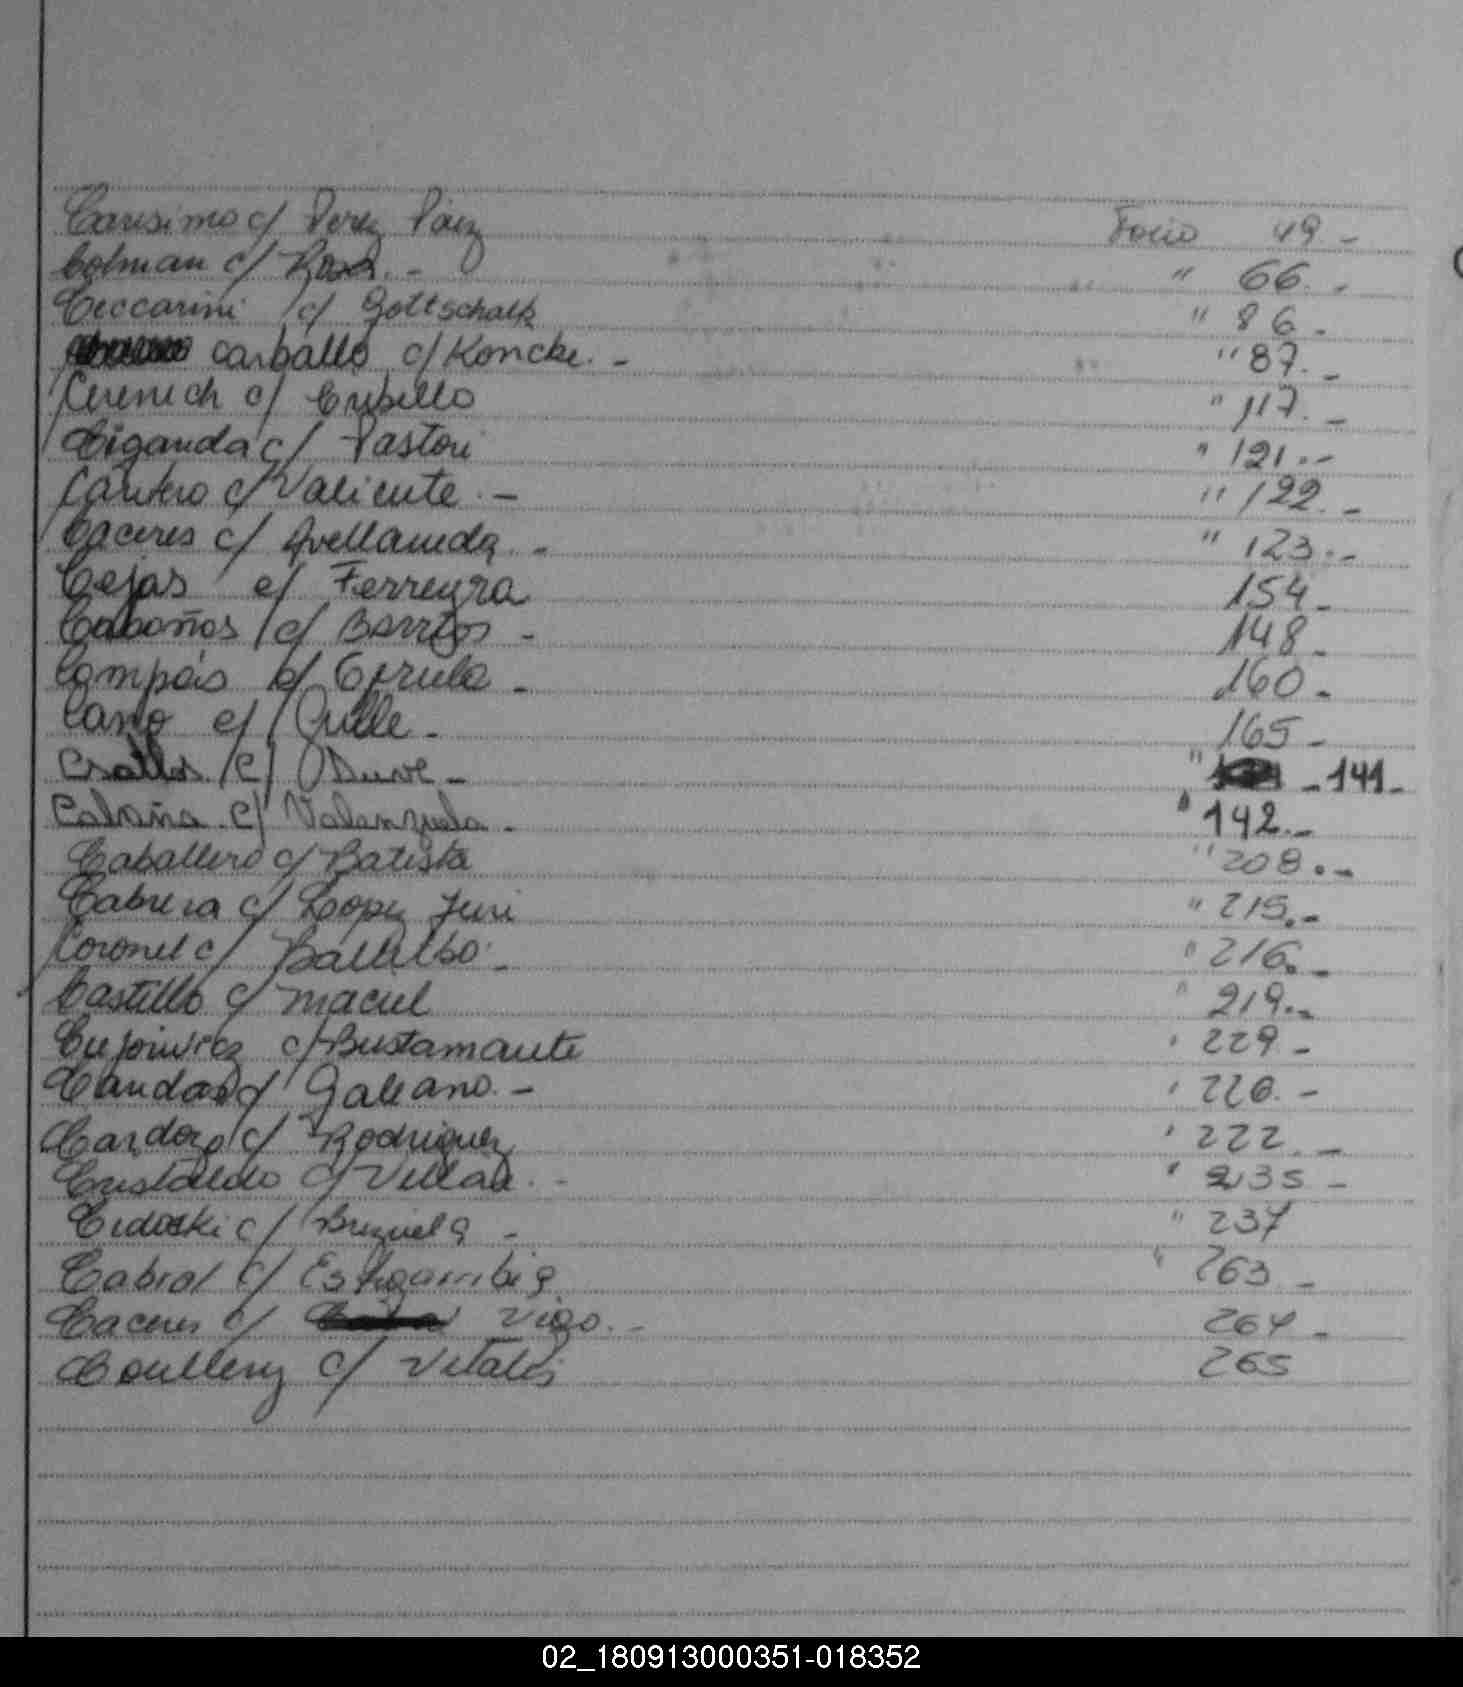 Carisimo c/ Perez Páez Folio 49.-
Colman c/ Roa.- " 66.-
Ceccarini c/ Gottschalk " 86.-
carballo c/ Koncke.- " 87.-
Cerenich c/ Cubillo " 117.-
Ciganda c/ Pastori " 121.-
Cantero c/ Valiente.- " 122.-
Caceres c/ Avellaneda.- " 123.-
Cejas c/ Ferreyra 154.-
Cabañas c/ Barrios - 148.-
c/ 160.-
Cano c/ 165-
c/ " -141-
Cabaña c/ Valenzuela - " 142.-
Caballero c/ Batista " 208.-
Cabrera c/ Lopez " 215.-
Coronel c/ " 216.-
Castillo c/ Maciel " 219.-
c/ Bustamante " 229-
c/ Galeano.- " 220.-
Cardozo c/ Rodriguez " 222.-
Cristaldo c/ " 235-
c/ Brizuela - " 237
Cabral c/ Estigarribia " 263-
Caceres c/ Vigo.- 264-
Coullery c/ Vitalis 265
02_180913000351-018352